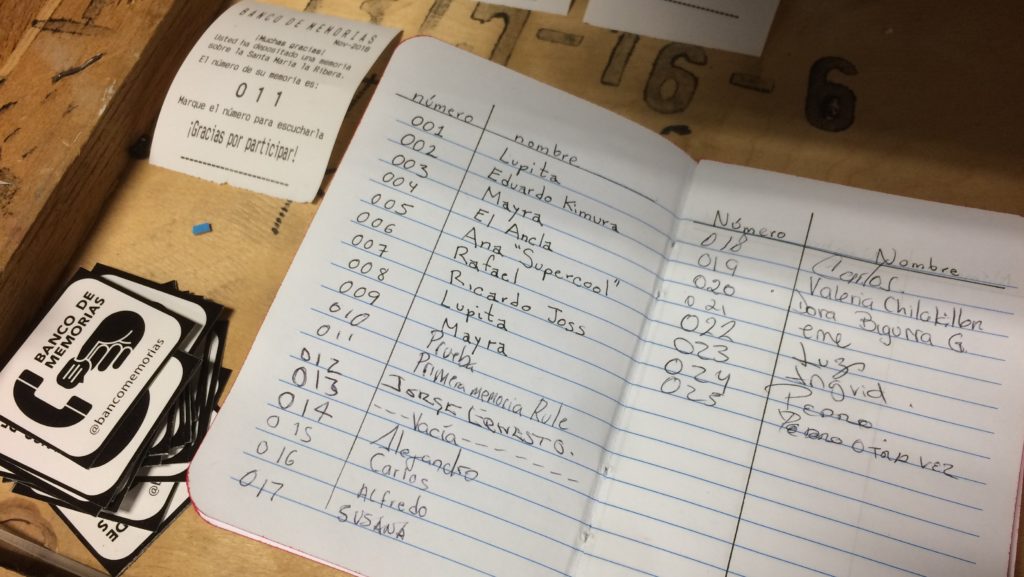 BANCO DE MEMORIAS
¡Muchas gracias!
Nov-2016
Usted ha depositado una memoria
sobre la Santa María la Ribera.
El número de su memoria es:
011
Marque el número para escucharla
¡Gracias por participar!
BANCO DE
MEMORIAS
@bancomemorias
número nombre
001 Lupita
002 Eduardo Kimura
003 Mayra
004 El Ancla
005 Ana "Supercool"
006 Rafael
007 Ricardo Joss
008 Lupita
009 Mayra
010 Prueba
011 Primera memoria Rule
012 JORGE ERNESTO.
013 ---Vacía------
014 Alejandro
015 Carlos
016 Alfredo
017 SUSANA
Número Nombre
018 Carlos
019 Valeria
020 Dora Bigurra G.
021 eme
022 Luz
023 Ingrid.
024 Pedro.
025 Pedro OTAR VEZ
76-6